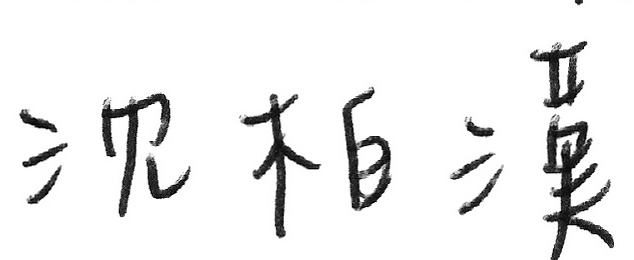 沈柏漢